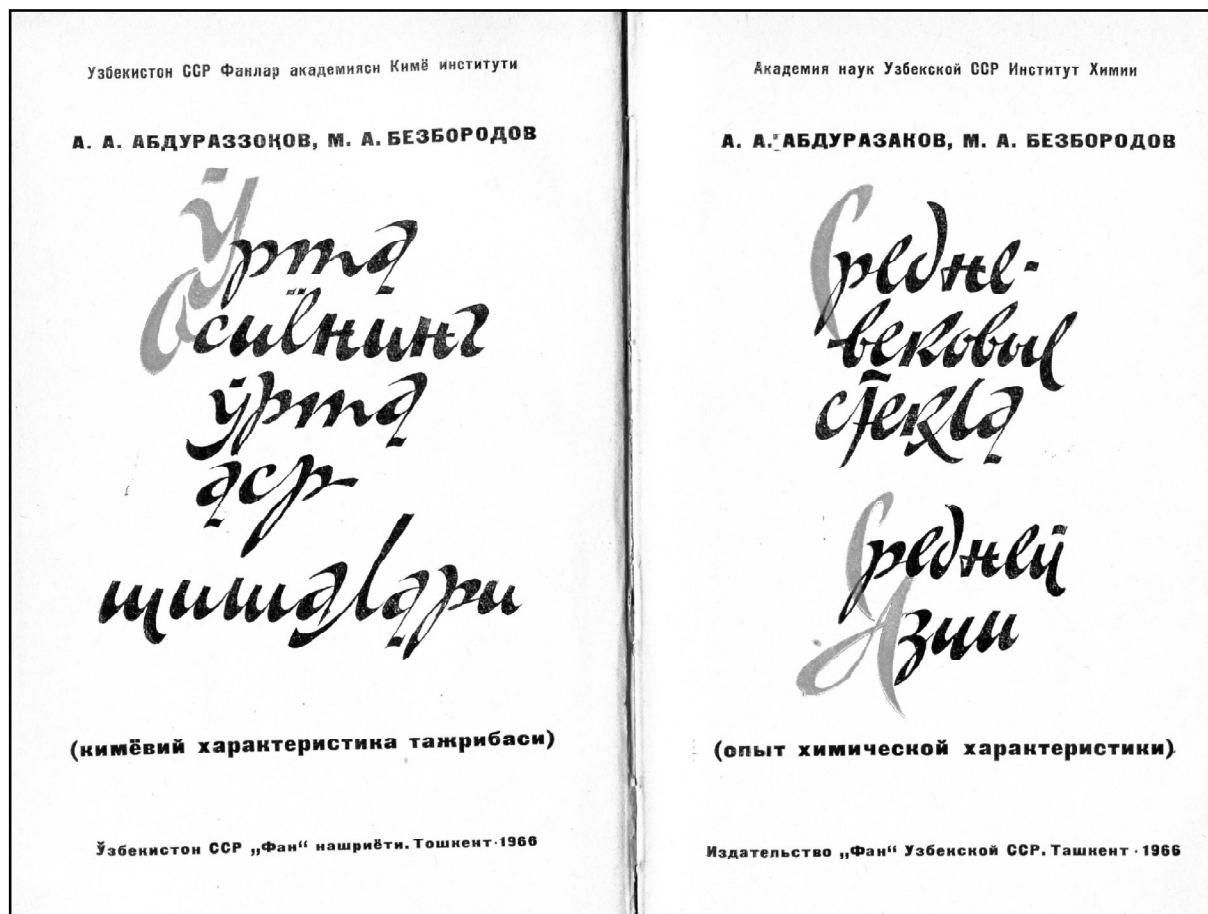 Узбекистон ССР Фанлар академияси Кимё институти
А. А. АБДУРАЗЗОҚОВ, М. А. БЕЗБОРОДОВ
Ўрта
Осиёнинг
ўрта
аср
шишалари
(кимёвий характеристика тажрибаси)
Ўзбекистон ССР „Фан“ нашриёти. Тошкент · 1966
Академия наук Узбекской ССР Институт Химии
А. А. АБДУРАЗАКОВ, М. А. БЕЗБОРОДОВ
Средне-
вековые
стекла
Средней
Азии
(опыт химической характеристики)
Издательство „Фан“ Узбекской ССР. Ташкент · 1966